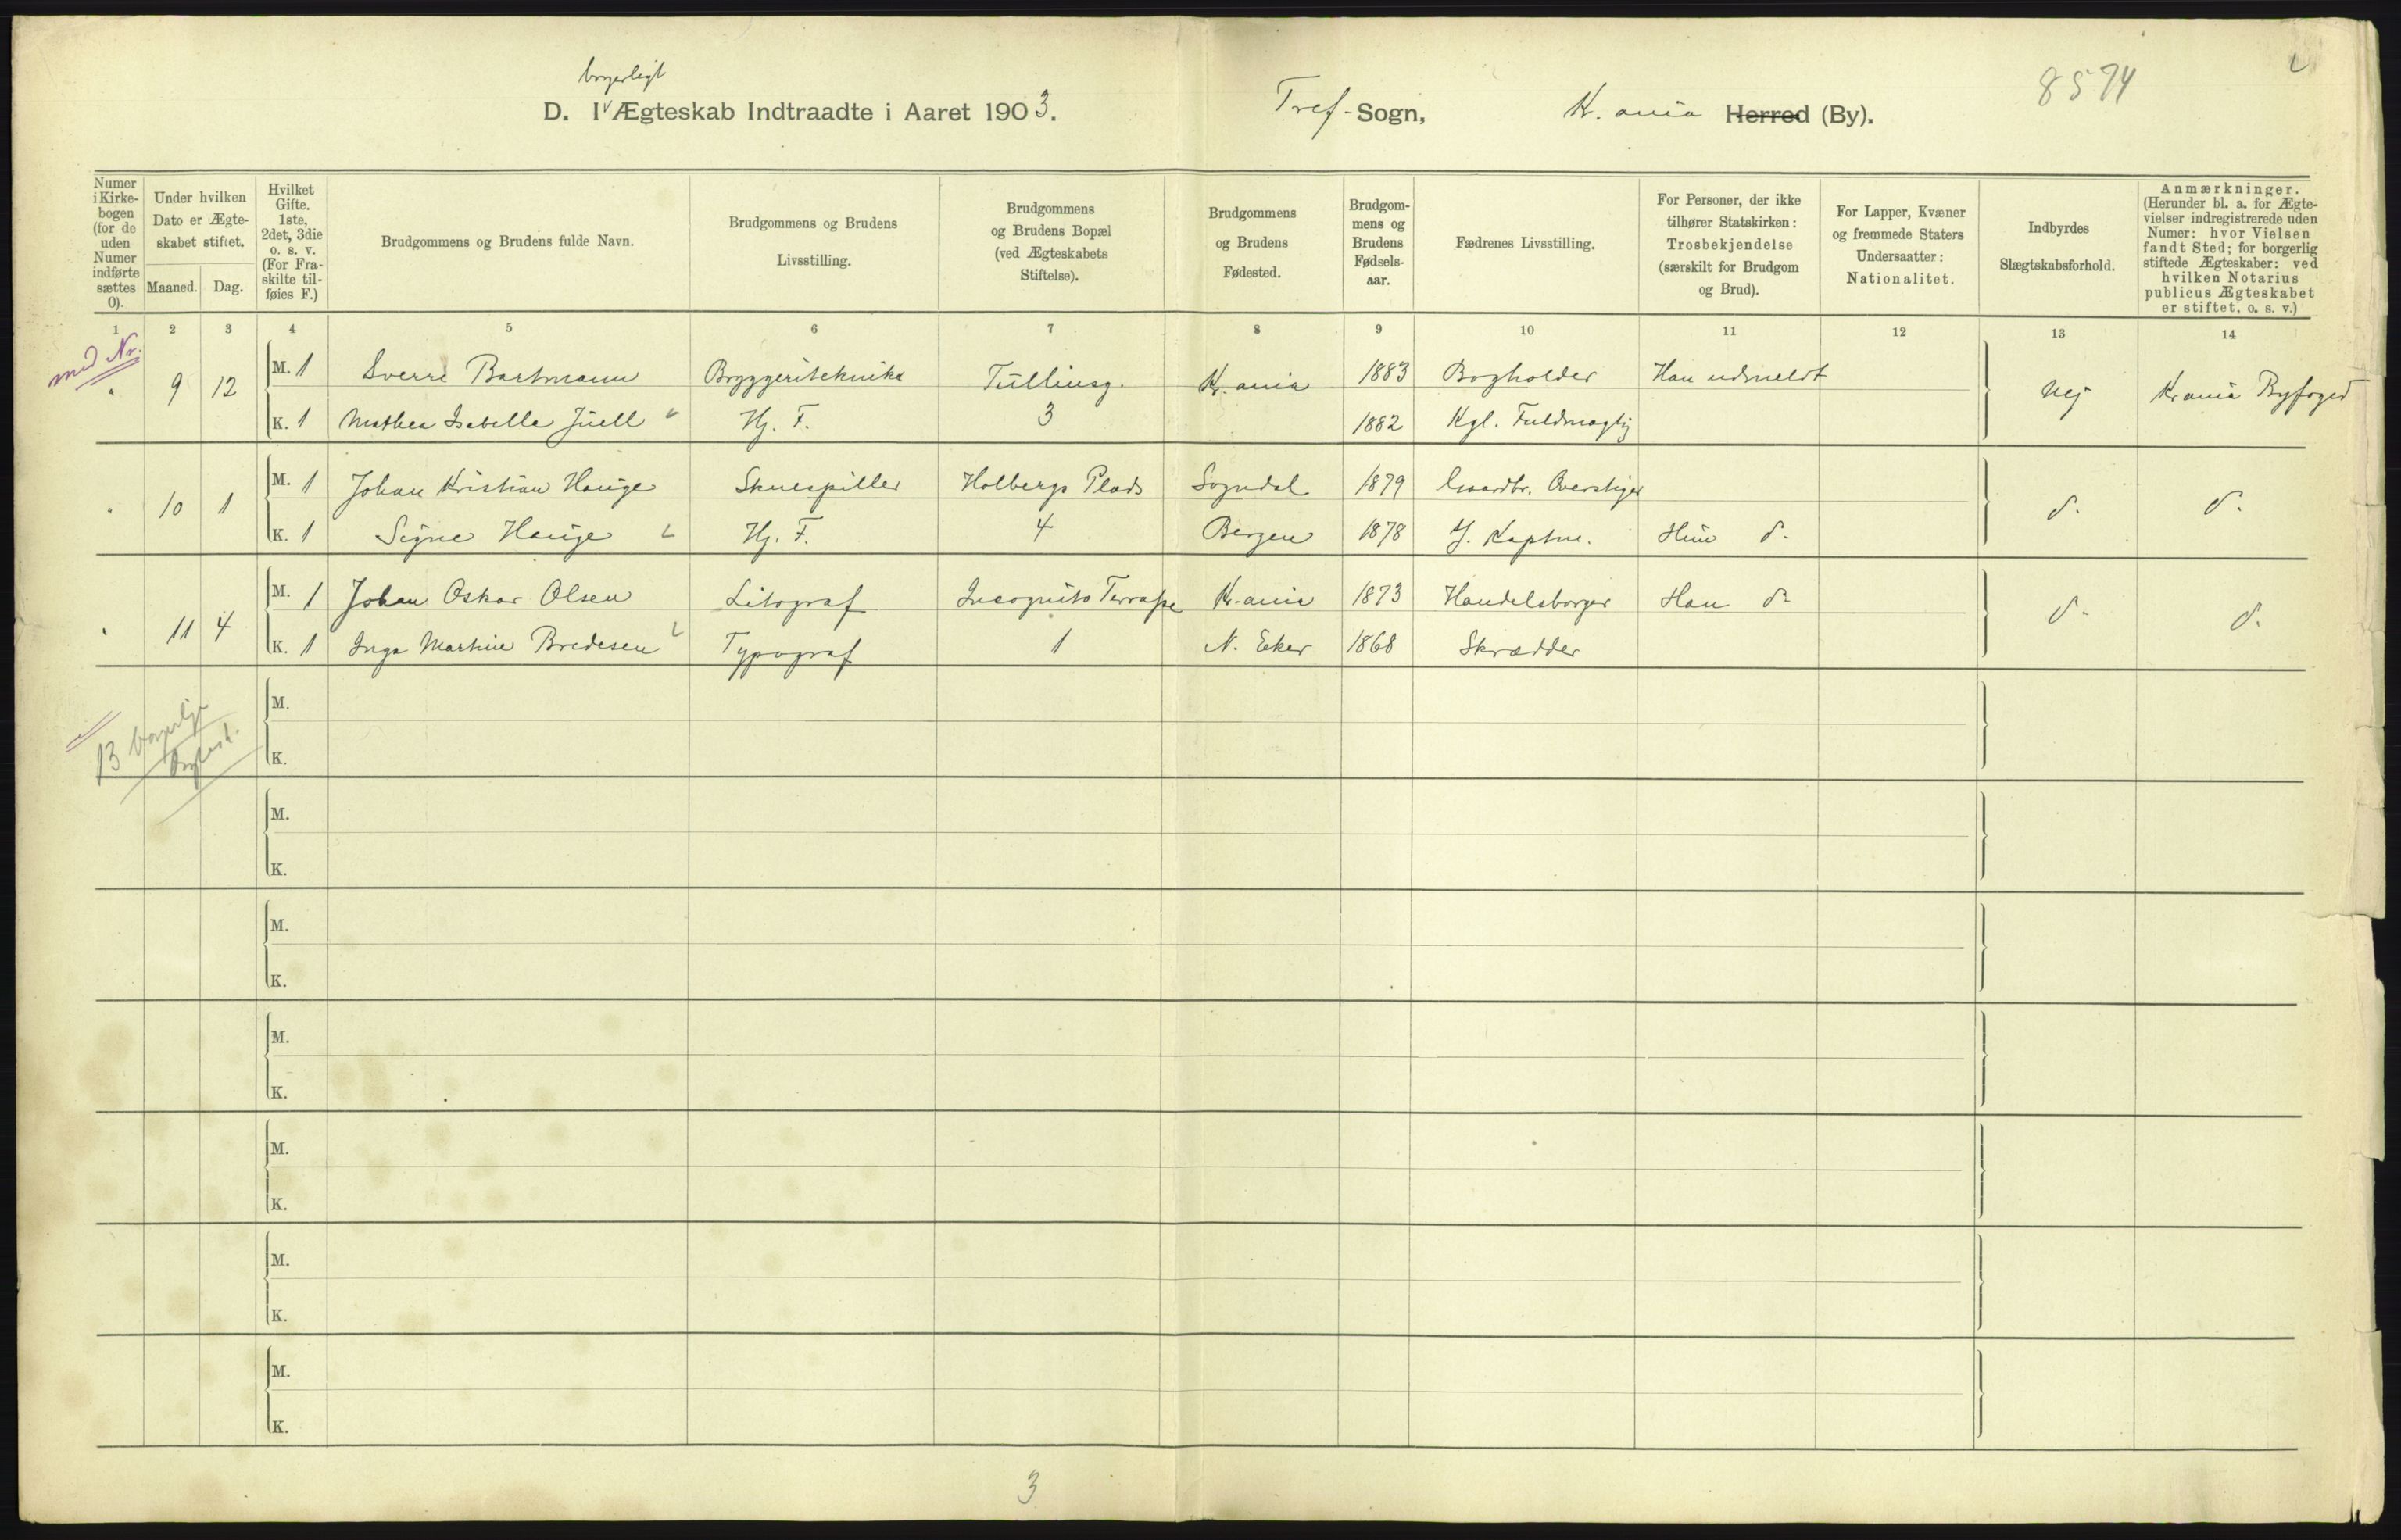 borgerligt
8574
D. I Ægteskab Indtraadte i Aaret 1903. Tref-Sogn, Kr.ania Herred (By).
Numer i Kirkebogen (for de uden Numer indførte sættes 0).
Under hvilken Dato er Ægteskabet stiftet.
Maaned. Dag.
Hvilket Gifte. 1ste, 2det, 3die o. s. v. (For Fraskilte tilføies F.)
Brudgommens og Brudens fulde Navn.
Brudgommens og Brudens Livsstilling.
Brudgommens og Brudens Bopæl (ved Ægteskabets Stiftelse).
Brudgommens og Brudens Fødested.
Brudgommens og Brudens Fødselsaar.
Fædrenes Livsstilling.
For Personer, der ikke tilhører Statskirken: Trosbekjendelse (særskilt for Brudgom og Brud).
For Lapper, Kvæner og fremmede Staters Undersaatter: Nationalitet.
Indbyrdes Slægtskabsforhold.
Anmærkninger. (Herunder bl. a. for Ægtevielser indregistrerede uden Numer: hvor Vielsen fandt Sted; for borgerlig stiftede Ægteskaber: ved hvilken Notarius publicus Ægteskabet er stiftet, o. s. v.)
1 2 3 4 5 6 7 8 9 10 11 12 13 14
med Nr.
9 12
M. 1 Sverre Bartmann Bryggeritekniker Tullinsg. Kr.ania 1883 Bogholder Han udmeldt Nej Kr.ania Byfoged
K. 1 Mathea Isabella Juell Hj. F. 3 1882 Kgl. Fuldmægtig
10 1
M. 1 Johan Kristian Hauge Skuespiller Holbergs Plads Sogndal 1879 Gaardbr. Overstiger d. d.
K. 1 Signe Hauge Hj. F. 4 Bergen 1878 Kaptn. Hun d.
11 4
M. 1 Johan Oskar Olsen Litograf Incognito Terrasse Kr.ania 1873 Handelsborger Han d. d. d.
K. 1 Inga Martine Bredesen Typograf 1 N. Eker 1868 Skrædder
13 borgerlige
Ægtesk.
M.
K.
M.
K.
M.
K.
M.
K.
M.
K.
M.
K.
M.
K.
3